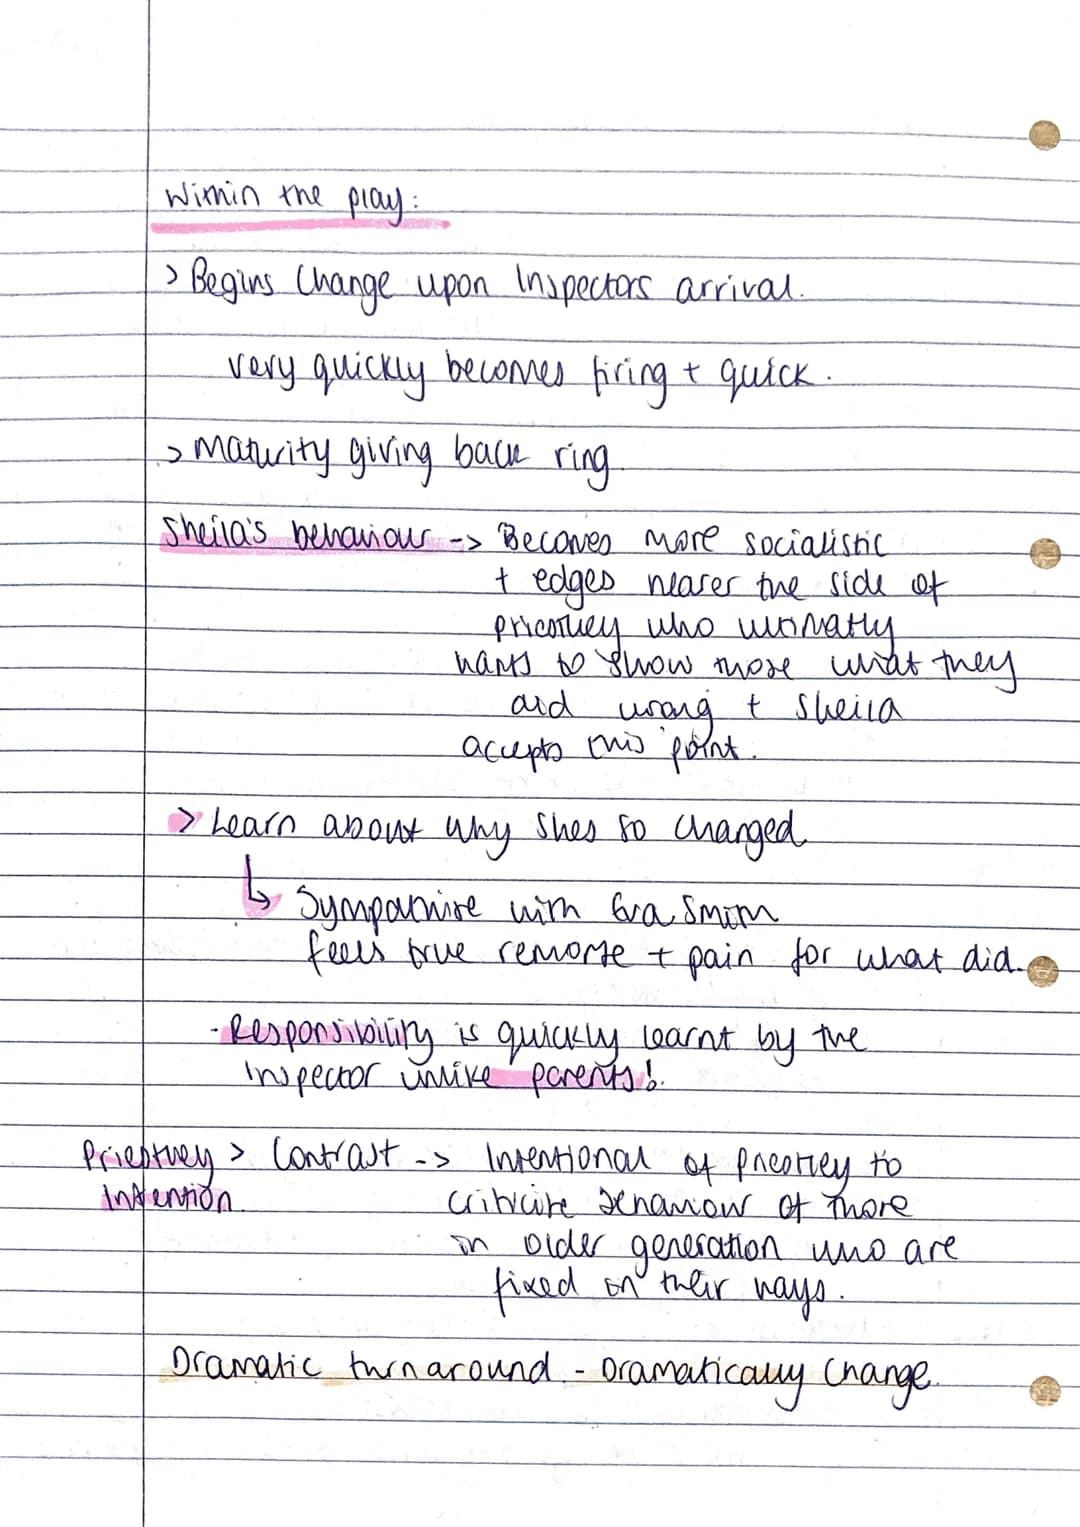 Within the play:
> Begins Change upon Inspectors arrival.
very quickly becomes firing + quick.
> Maturity giving back ring
Sheila's behaviour -> Becomes more socialistic
+ edges nearer the side of
pricorley who ultimatly
wants to show those what they
did wrong + Sheila
accepts this point.
> Learn about why shes so changed
↳ Sympathise with Eva Smith
feels true remorse + pain for what did.
- Responsibility is quickly learnt by the
Inspector unlike parents!.
Priestley > Contrast -> Intentional of Preistley to
Intention
criticise behaviour of those
in older generation who are
fixed on their ways.
Dramatic turnaround. - Dramatically Change.